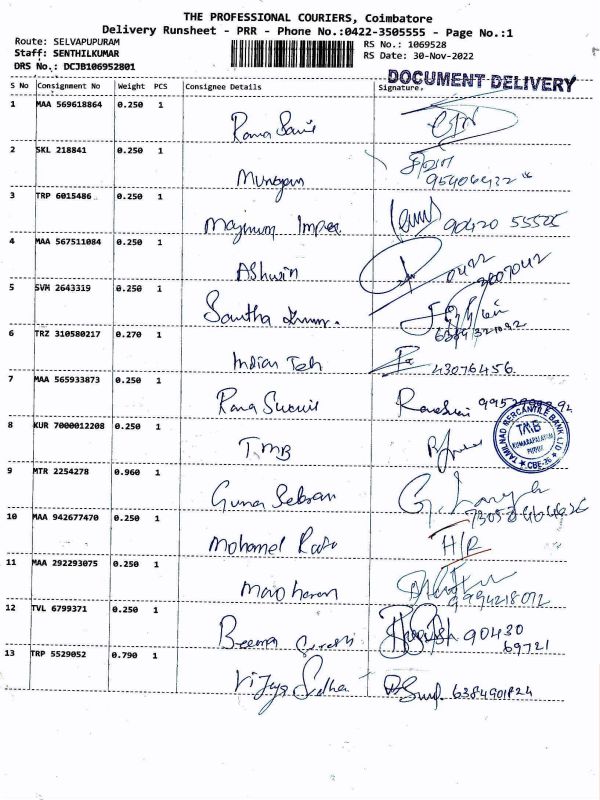 THE PROFESSIONAL COURIERS, Coimbatore
Delivery Runsheet - PRR - Phone No.:0422-3505555 - Page No.:1
Route: SELVAPUPURAM
RS No.: 1069528
Staff: SENTHILKUMAR
RS Date: 30-Nov-2022
DRS No.: DCJB106952801
DOCUMENT DELIVERY
S No Consignment No Weight PCS Consignee Details Signature,
1 MAA 569618864 0.250 1
2 SKL 218841 0.250 1
Murugan
3 TRP 6015486 0.250 1
Magnum Impex 90420 55525
4 MAA 567511084 0.250 1
Ashwin 0422
5 SVM 2643319 0.250 1
Santha
6 TRZ 310580217 0.270 1
Indian Teh 43076456
7 MAA 565933873 0.250 1
Rama
8 KUR 7000012208 0.250 1
TMB
TAMILNAD MERCANTILE BANK LTD
TMB
CBE-26
9 MTR 2254278 0.960 1
Guna
10 MAA 942677470 0.250 1
Mohamel H/R
11 MAA 292293075 0.250 1
Manoharan 9994218072
12 TVL 6799371 0.250 1
Beema 90430
69721
13 TRP 5529052 0.790 1
Vijaya Sudha